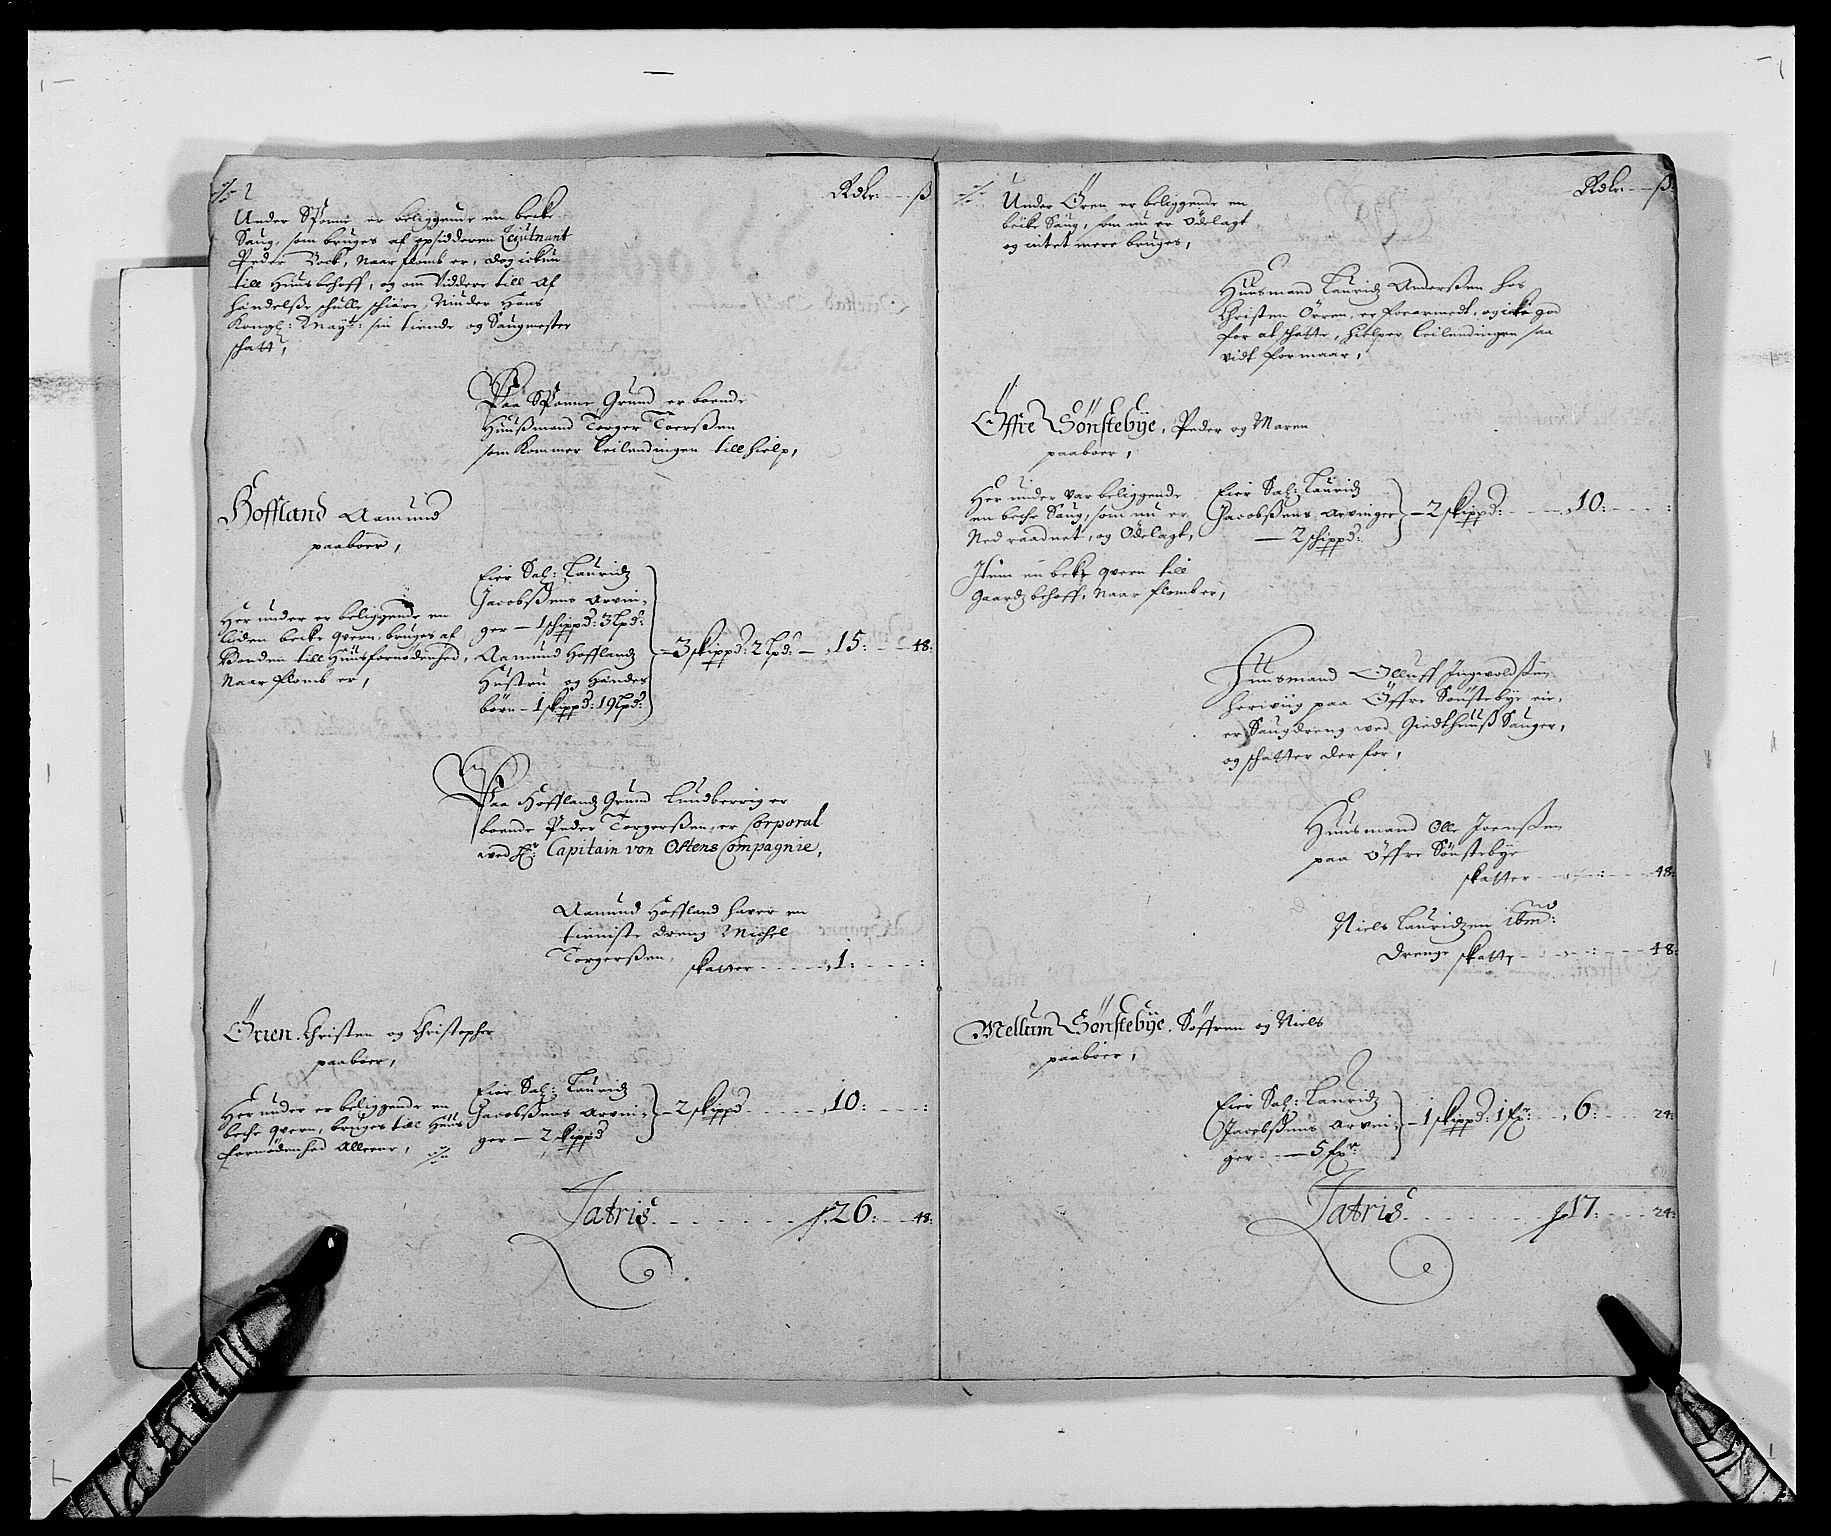 Rdlr: ß
Under Sponne er beliggende en becke
Saug, som bruges af opsidderen Leiutnant
Peder Bock, Naar flomb er, dog ickun
till Huus behoff, og om Viddere till Af
hendelse schulle schiære, Niuder Hans
Kongl: Mayts: sin tiende og Saugmester
schatt,
Paa Sponne Grund er boende
Huusmand Torger Toersßen
som kommer leilendingen till hielp,
Hoffland Aamund
paaboer,
Her under er beliggende en
liden becke quern, bruges af
Bonden till Huusfornødenhed,
Naar flomb er,
Eier Sal: Lauridz
Jacobsßens Arvin-
ger - 1 schippd: 3 lpd:
Aamund Hofflandz
Hustru og Hendes
børn - 1 skippd: 19 lpd:
- 3 skippd: 2 lpd: - 15: - 48:
Paa Hofflandz Grund Lundberrig er
boende Peder Torgersßen, er Corporal
wed Hr: Capitain von Ostens Compagnie,
Aamund Hoffland haver en
tieniste dreng Michel
Torgersßen,
skatter - - - 1: - - :
Örien. Christen og Christopher
paaboer,
Her under er beliggende en
beche quern, bruges till Huus
fornødenhed Alleene,
Eier Sal: Lauridz
Jacobsßens Arvin-
ger - 2 skippd
- 2 skippd - - - 10: - - :
Latris - - - 26: - 48:
Rdlr: ß:
Under Ören er beliggende en
becke Saug, som nu er Ödelagt
og intet mere bruges,
Huusmand Lauridz Andersßen hos
Christen Örren, er forarmedt, og icke god
for at schatte, hielper leilendingen saa
vidt formaar,
Öffre Sönstebÿe, Peder og Maren
paaboer,
Her under var beliggende
en beche Saug, som nu er
Ned raadnet, og Ödelagt,
Item en beke quern till
Gaardz behoff, Naar flomb er,
Eier Sal: Lauridz
Jacobsßens Arvinger
- 2 schippd:
- 2 skippd: - - - 10: - - :
Huusmand Olluff Ingwoldsßen
paa Öffre Sönstebye eie,
er Saugdreng wed Giedthuuß Sauger,
og schatter derfor,
Huusmand Olle Joensßen
paa Öffre Sönstebye
skatter - - - 48:
Niels Lauridzen ibmd:
Drenge skatt, - - - 48:
Mellum Sönstebÿe. Söffren og Niels
paaboer,
Eier Sal: Lauridz
Jacobsßens Arvin-
ger - - 5 fxr:
- 1 skippd: 1 fxr: - 6: - - 24:
Latris - - - 17: - - 24: